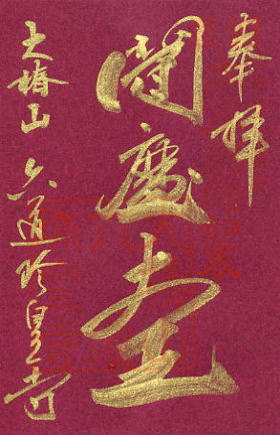 奉拝
閻魔堂
大椿山 六道珍皇寺